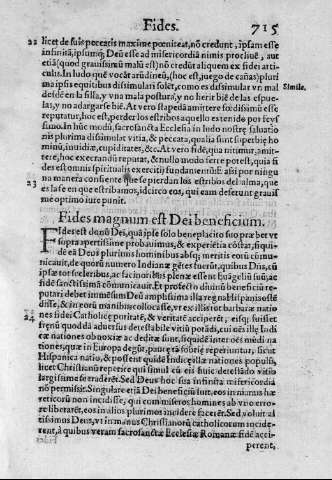 Fides. 715
22 licet de suis peccatis maxime pœniteat, nõ credunt, ipsam esse
infinitã, ipsumq́; Deũ esse ad misericordiã nimis proclivẽ, aut
(quod gravissimũ malũ est) nõ credũt aliquem ex fidei arti-
culis. In ludo quẽ vocãt arũdineũ, (hoc est, juego de cañas) pluri
ma ipsis equitibus dissimulari solẽt, como es dissimular vn mal Simile.
desdẽ en la silla, y vna mala postura, y no herir biẽ de las espue-
las, y no adargarse biẽ. At vero stapedã amittere fœdissimũ esse
reputatur, hoc est, perder los estribos aquello extenido por feys
simo. In hũc modũ, sacrosancta Ecclesia in ludo nostrę saluatio
nis plurima dissimulat vitia, & peccata, qualia sunt superbię ho
minũ, invidiæ, cupiditates, &c. At vero fidẽ, qua nitimur, amitte-
re, hoc execrandũ reputat, & nullo modo ferre potest, quia fi
des est omnis spiritualis exercitij fundamentũ. E assi por ningu
na manera consiente que se pierdan los estribos del alma, que
23 es la fe en que estribamos, idcirco eos, qui eam deserunt gravis
sime optimo iure punit.
Fides magnum est Dei beneficium.
Fides est donũ Dei, quã ipse solo beneplacito suo præbet ve
supra apertissime probauimus, & experiẽtia cõstat, siqui-
dẽ eã Deus plurimis hominibus absq; meritis eorũ cõmu-
nicauit, de quorũ numero Indianæ gẽtes fuerũt, quibus Dñs, cũ
ipsæ tot sceleribus, ac facinoribus plenæ essent Euãgeliũ suũ, ac
fidẽ sanctissimã cõmunicauit. Et profecto diuinũ beneficiũ re-
putari debet immẽsum Deũ amplissima illa regna Hispanis osdẽ
disse, & in eorũ manibus collocasse, vt ex illis tot barbaræ natio
24 nes fidei Catholicę puritatẽ, & veritatẽ acciperẽt, eisq; fuisset
frẽnũ quoddã aduersus detestabile vitiũ potãdi, cui oẽs illę Indi
cæ nationes obnoxiæ ac deditæ sunt, siquidẽ inter oẽs mũdi na
tiones, quæ in Europa degũt, paucę tã sobrię reperiuntur, sicut
Hispanica natio, & posset quidẽ Indię illæ nationes populũ,
licet Christianũ reperire qui simul cũ eis huic detestãdo vitio
largissime se traderẽt. Sed Deus hoc sua infinita misericordia
nõ permisit. Singulare etiã Dei beneficiũ fuit, eos in manus hæ
reticorũ non incidisse, qui cum miseros homines ab vno erro-
re liberarẽt, eos in alios plurimos incidere facerẽt. Sed voluit al
tissimus Deus, vt in manus Christianorũ catholicorum incide-
rent, à quibus veram sacrosanctæ Ecclesiæ Romanæ fidẽ acci
perent,